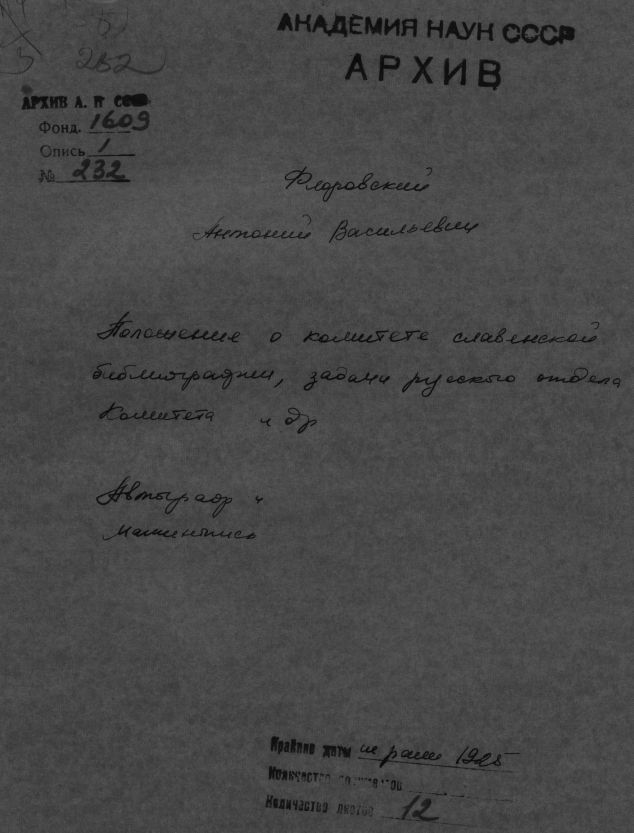 252
АКАДЕМИЯ НАУК СССР
АРХИВ
АРХИВ А. Н СССР
Фонд. 1609
Опись 1
№ 232
Флоровский
Антоний Васильевич
Положение о комитете славянской
библиографии, задачи русского отдела
Комитета и др
Автограф и
машинопись
Крайние даты не ранее 1925
Количество документов
Количество листов 12